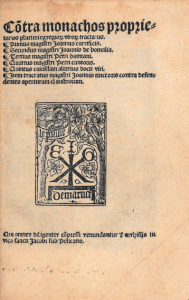 Cõtra monachos proprie-
tarios plurimi egregiorũ viroɽ tractatus.
Primus magistri Joannis carnificis.
Secundus magistri Joannis de bomalia.
Tertius magistri Petri damiani.
Quartus magistri Petri cantoris.
Quintus cuiusdam alterius docti viri.
Item tractatus magistri Joannis contra
E I O
Demarnef
Qui omnes diligenter cõpressi venundantur parrhisijs in
vico sancti Jacobi sub Pelicano.